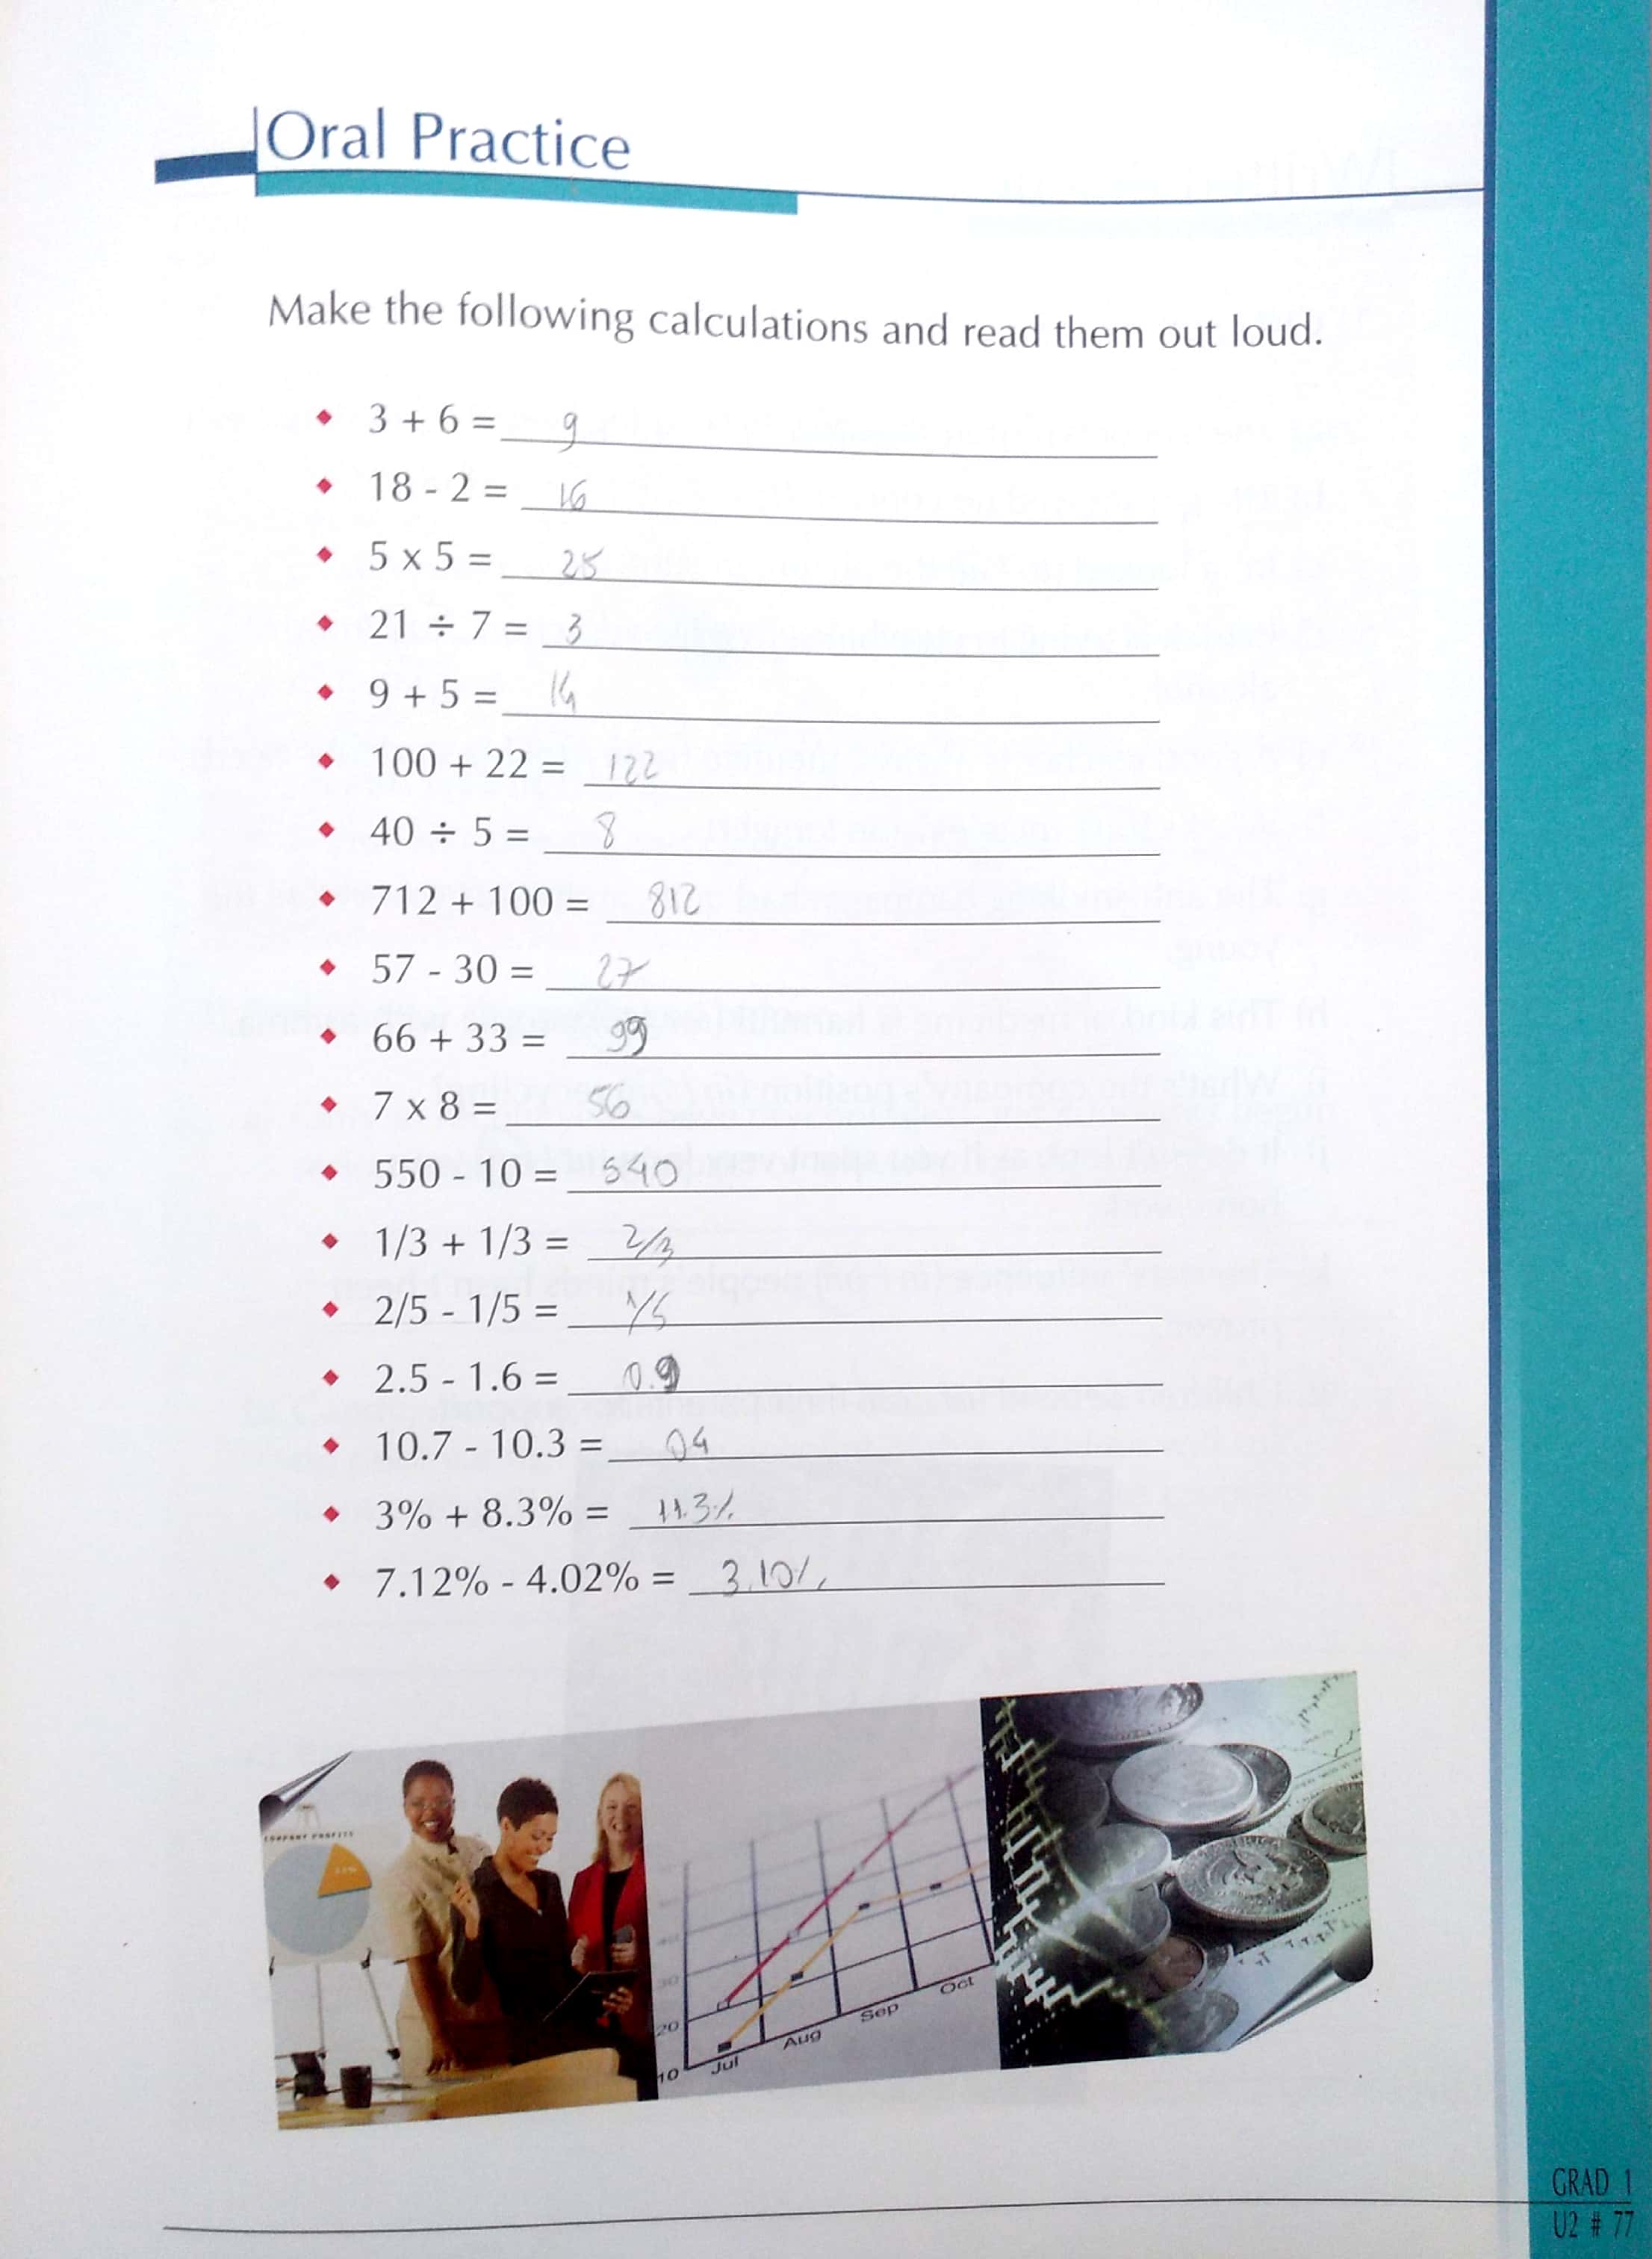 Oral Practice
Make the following calculations and read them out loud.
3 + 6 = 9
18 - 2 = 16
5 x 5 = 25
21 ÷ 7 = 3
9 + 5 = 14
100 + 22 = 122
40 ÷ 5 = 8
712 + 100 = 812
57 - 30 = 27
66 + 33 = 99
7 x 8 = 56
550 - 10 = 540
1/3 + 1/3 = 2/3
2/5 - 1/5 = 1/5
2.5 - 1.6 = 0.9
10.7 - 10.3 = 04
3% + 8.3% = 11.3%
7.12% - 4.02% = 3.10%
COMPANY PROFITS
40
30
20
10
Jul
Aug
Sep
Oct
GRAD 1
U2 # 77